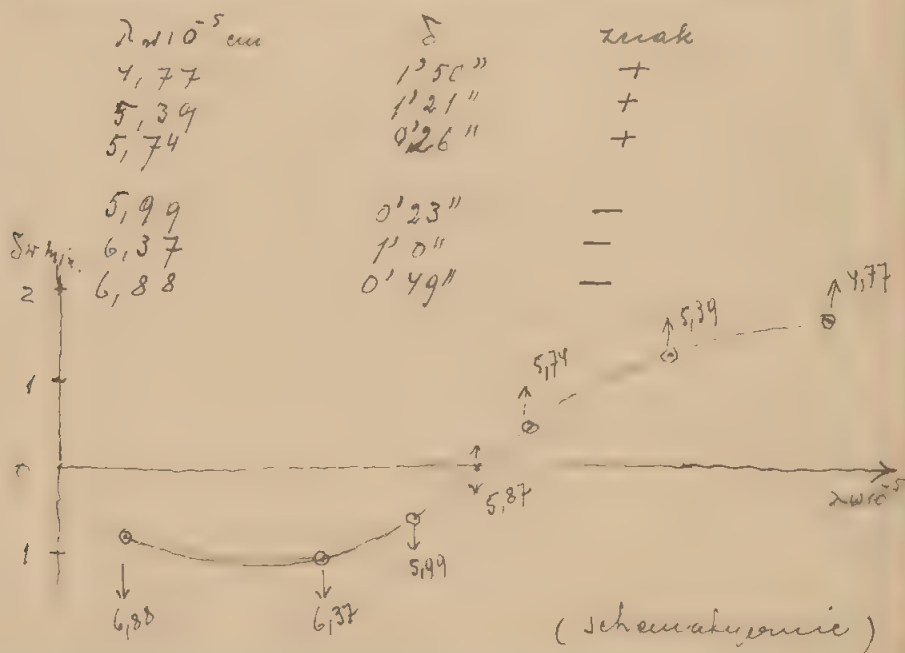 λ w 10⁻⁵ cm δ znak
4,77 1'50" +
5,39 1'21" +
5,74 0'26" +
5,99 0'23" —
6,37 1'0" —
6,88 0'49" —
δ w min.
2
1
0
1
4,77
5,39
5,74
5,87
5,99
6,37
6,88
λ w 10⁻⁵
(schematycznie)